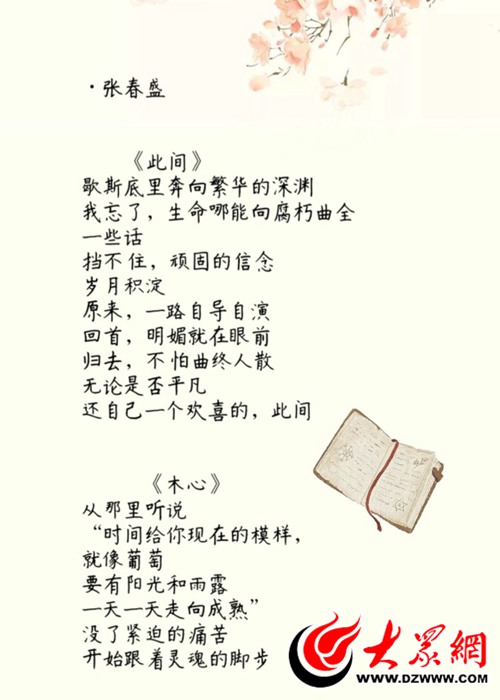 ·张春盛
《此间》
歇斯底里奔向繁华的深渊
我忘了，生命哪能向腐朽曲全
一些话
挡不住，顽固的信念
岁月积淀
原来，一路自导自演
回首，明媚就在眼前
归去，不怕曲终人散
无论是否平凡
还自己一个欢喜的，此间
《木心》
从那里听说
“时间给你现在的模样，
就像葡萄
要有阳光和雨露
一天一天走向成熟”
没了紧迫的痛苦
开始跟着灵魂的脚步
大眾網
WWW.DZWWW.COM